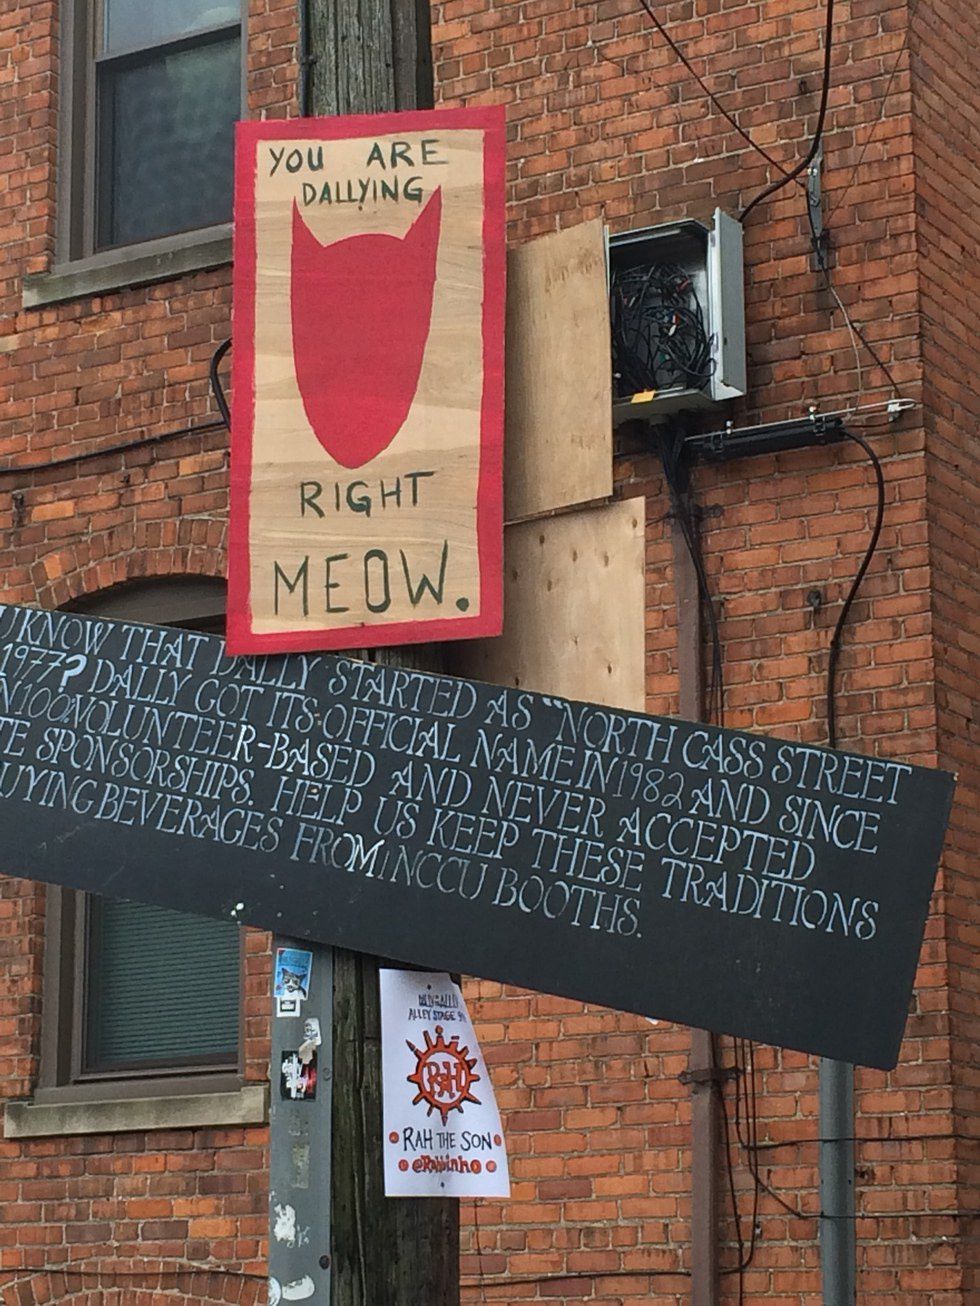 YOU ARE
DALLYING
RIGHT
MEOW.
U KNOW THAT DALLY STARTED AS "NORTH CASS STREET
1977? DALLY GOT ITS OFFICIAL NAME IN 1982 AND SINCE
N 100% VOLUNTEER-BASED AND NEVER ACCEPTED
TE SPONSORSHIPS. HELP US KEEP THESE TRADITIONS
UYING BEVERAGES FROM NCCU BOOTHS.
ALLEY STAGE
RAH
RAH THE SON
@Rahbinho